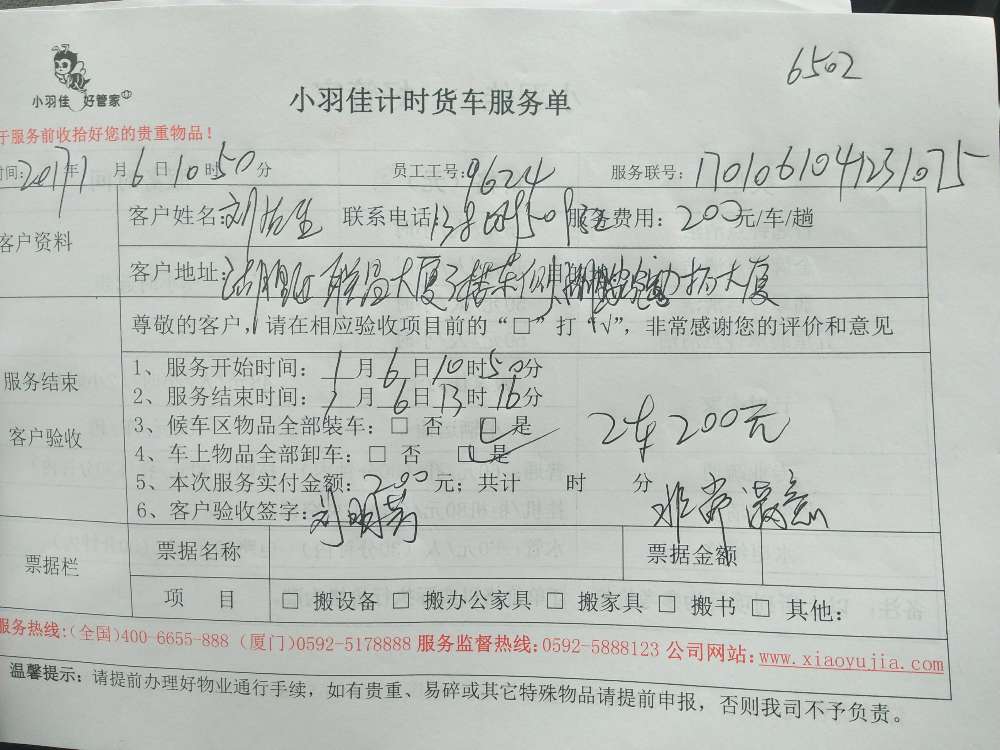 6502
小羽佳 好管家
小羽佳计时货车服务单
于服务前收拾好您的贵重物品！
时间:2017年1月6日10时50分 员工工号:9624 服务联号:1701061041231075
客户资料
客户姓名:刘 联系电话: 服务费用:200元/车/趟
客户地址: 大厦 大厦
尊敬的客户，请在相应验收项目前的“□”打“√”，非常感谢您的评价和意见
服务结束
客户验收
1、服务开始时间:1月6日10时50分
2、服务结束时间:1月6日13时16分
3、候车区物品全部装车:□ 否 □ 是
2车200元
4、车上物品全部卸车:□ 否 □ 是
5、本次服务实付金额:200元;共计 时 分
6、客户验收签字:
非常满意
票据栏
票据名称 票据金额
项 目 □ 搬设备 □ 搬办公家具 □ 搬家具 □ 搬书 □ 其他:
服务热线:(全国)400-6655-888 (厦门)0592-5178888 服务监督热线:0592-5888123 公司网站:www.xiaoyujia.com
温馨提示: 请提前办理好物业通行手续，如有贵重、易碎或其它特殊物品请提前申报，否则我司不予负责。